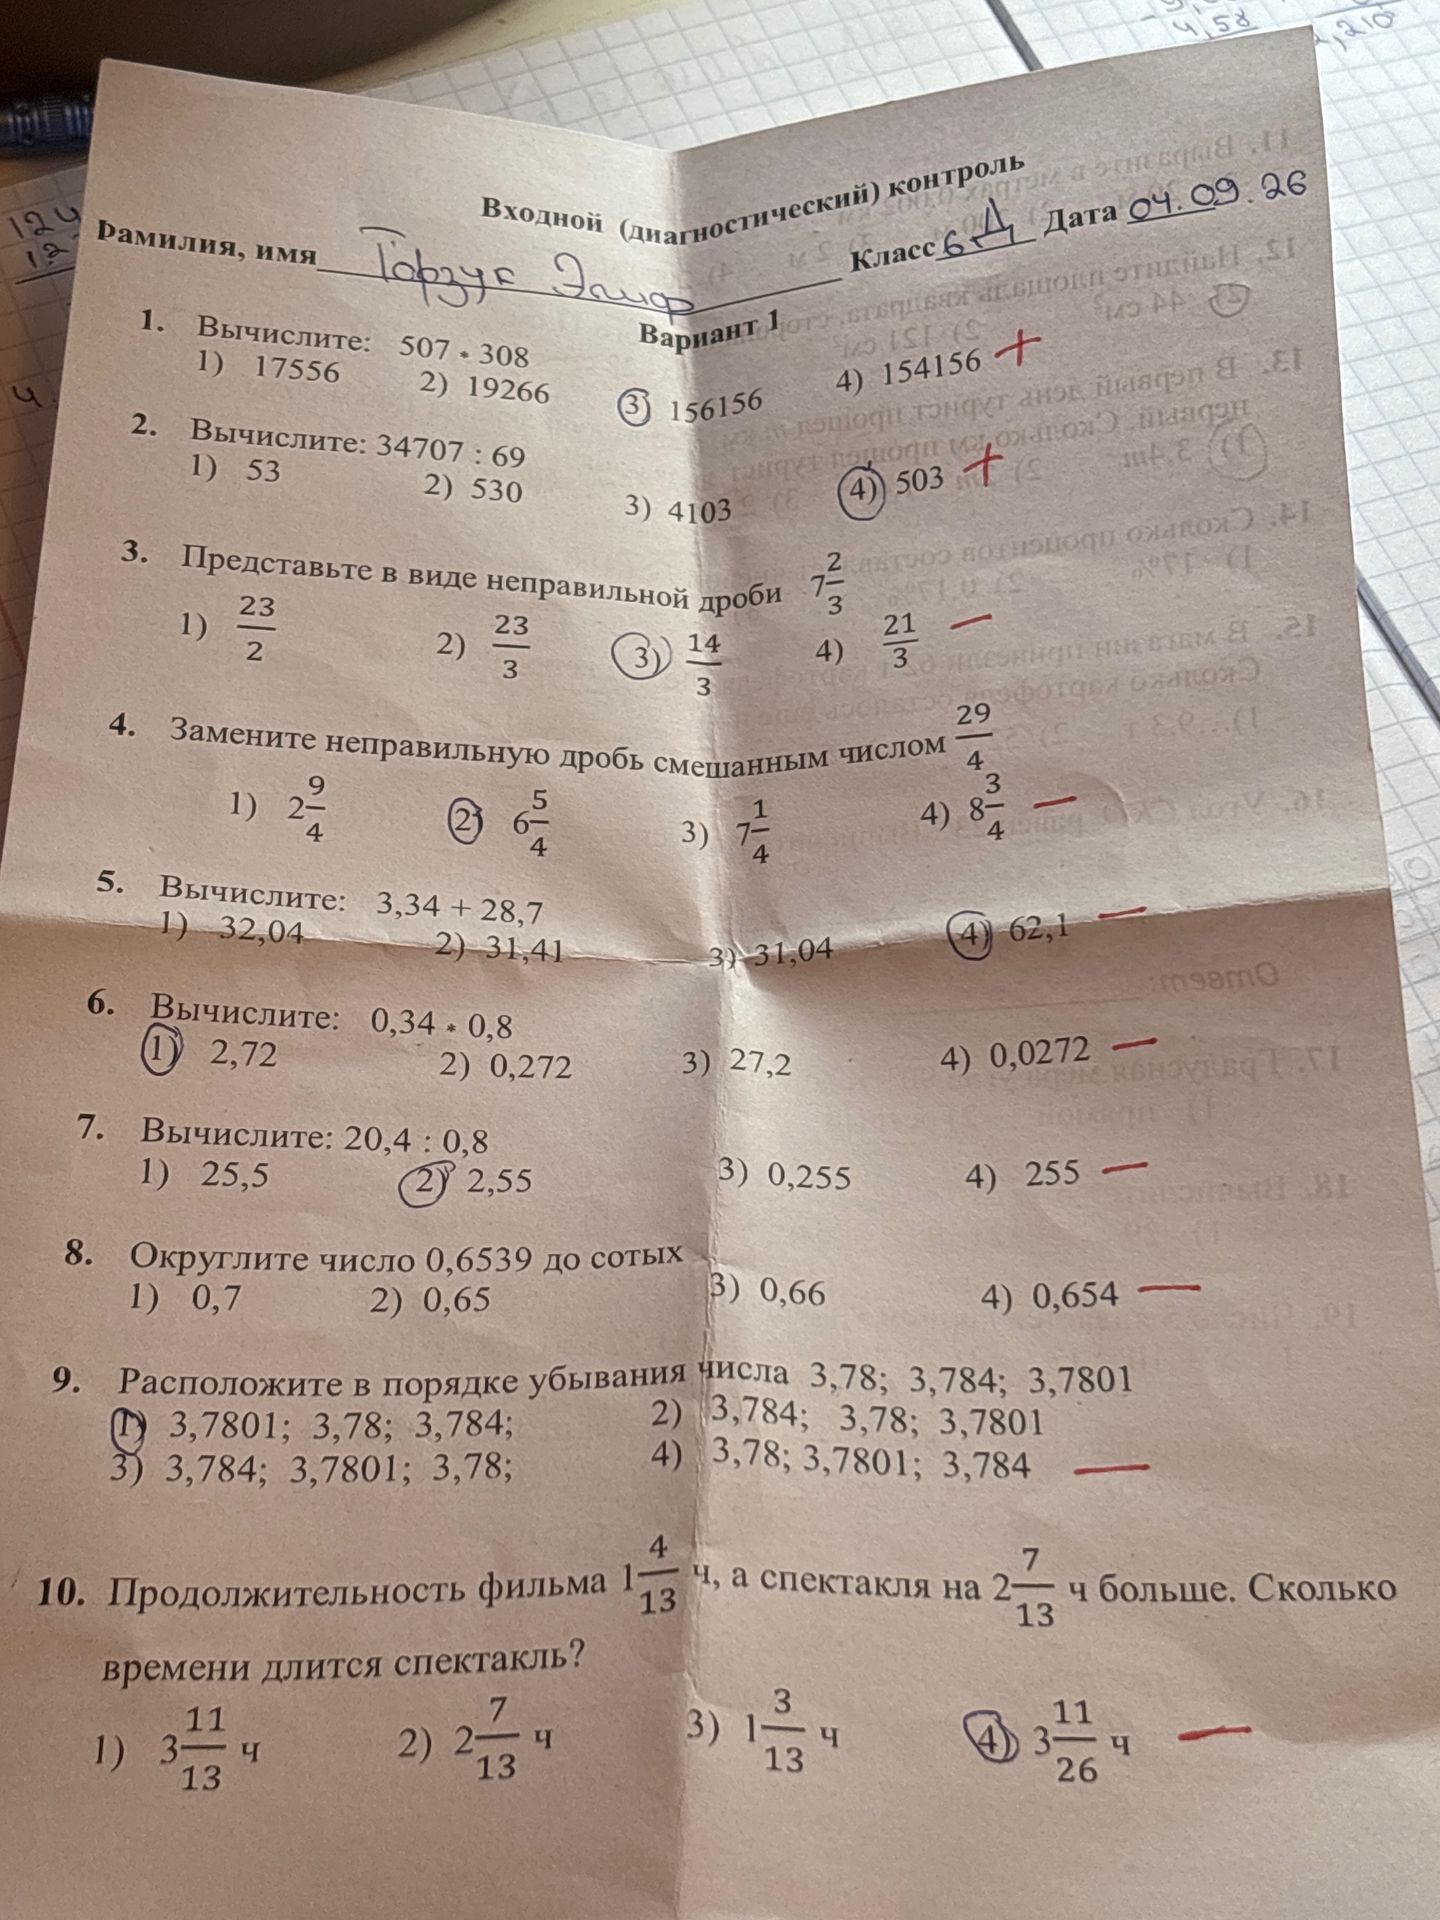 Входной (диагностический) контроль
Фамилия, имя Эмир Класс 6 Д Дата 04.09.26
Вариант 1
1. Вычислите: 507 * 308
1) 17556 2) 19266 3) 156156 4) 154156 +
2. Вычислите: 34707 : 69
1) 53 2) 530 3) 4103 4) 503 +
3. Представьте в виде неправильной дроби 7 2/3
1) 23/2 2) 23/3 3) 14/3 4) 21/3 —
4. Замените неправильную дробь смешанным числом 29/4
1) 2 9/4 2) 6 5/4 3) 7 1/4 4) 8 3/4 —
5. Вычислите: 3,34 + 28,7
1) 32,04 2) 31,41 3) 31,04 4) 62,1 —
6. Вычислите: 0,34 * 0,8
1) 2,72 2) 0,272 3) 27,2 4) 0,0272 —
7. Вычислите: 20,4 : 0,8
1) 25,5 2) 2,55 3) 0,255 4) 255 —
8. Округлите число 0,6539 до сотых
1) 0,7 2) 0,65 3) 0,66 4) 0,654 —
9. Расположите в порядке убывания числа 3,78; 3,784; 3,7801
1) 3,7801; 3,78; 3,784; 2) 3,784; 3,78; 3,7801
3) 3,784; 3,7801; 3,78; 4) 3,78; 3,7801; 3,784 —
10. Продолжительность фильма 1 4/13 ч, а спектакля на 2 7/13 ч больше. Сколько
времени длится спектакль?
1) 3 11/13 ч 2) 2 7/13 ч 3) 1 3/13 ч 4) 3 11/26 ч —